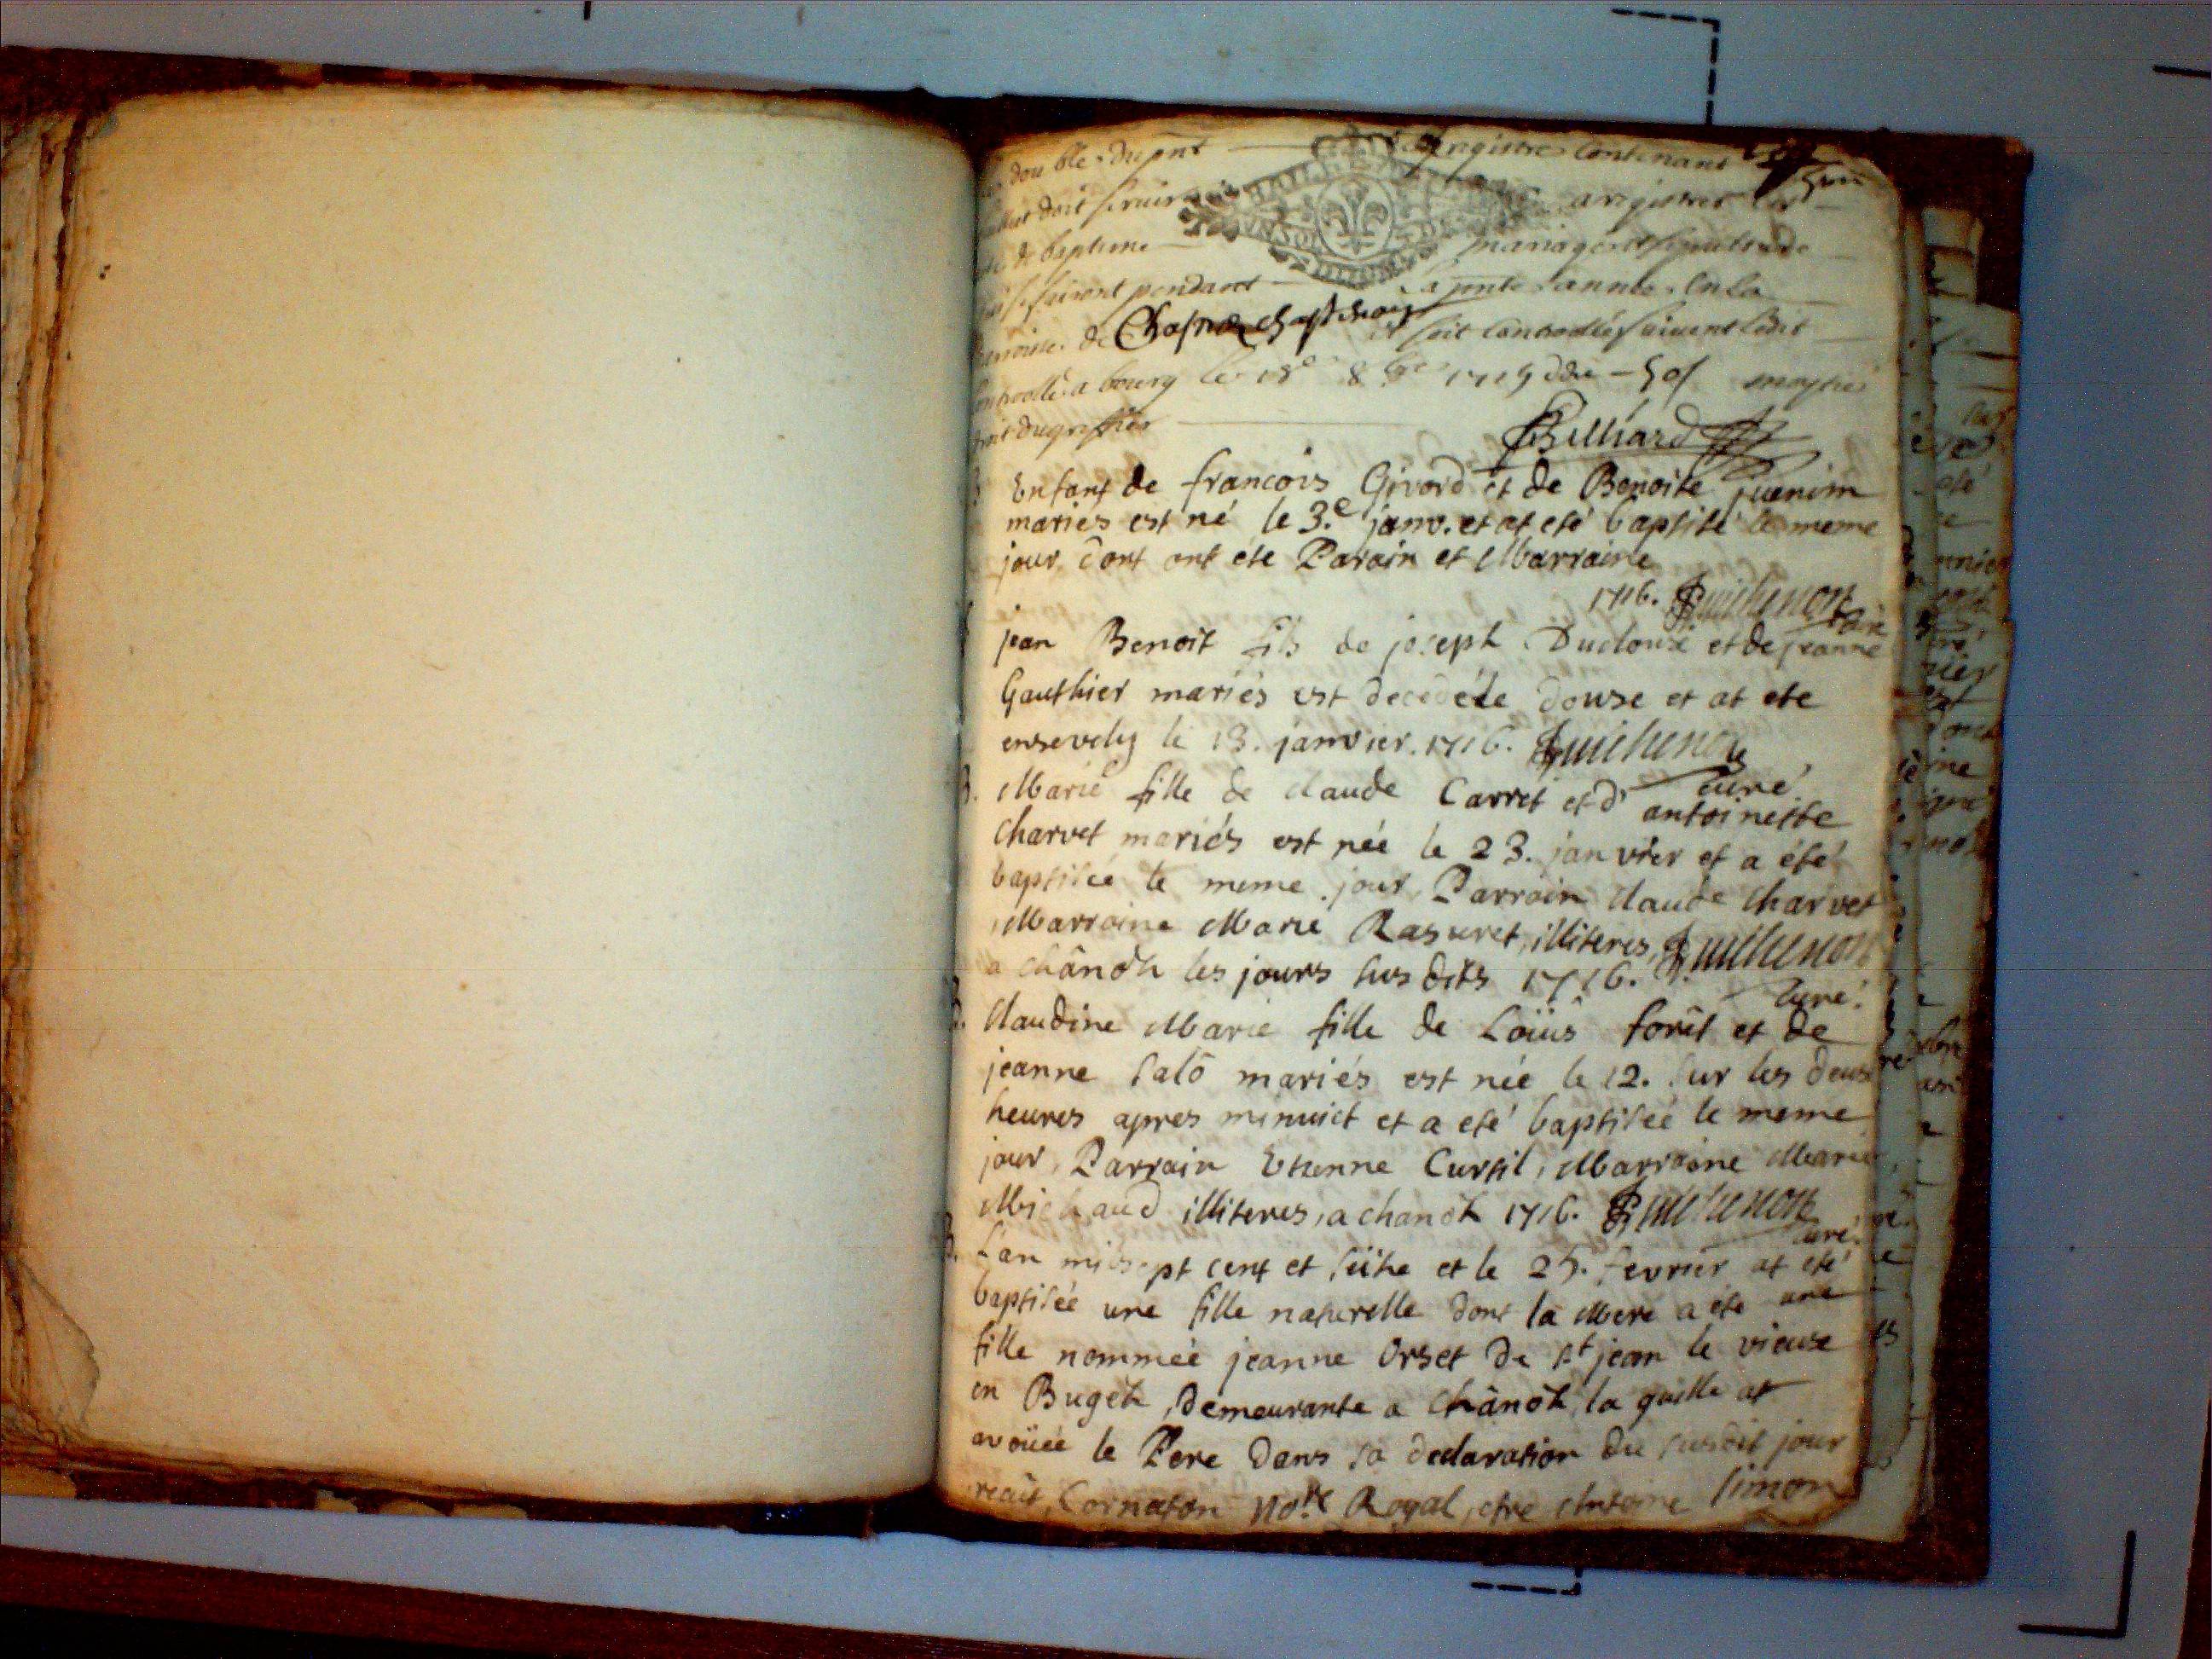 double du pnt registre contenant
doit servir a registrer les
de baptisme mariages et sepultures
se fairont pendant la pnte année en la
parroisse de et soit controollé suivant ledit
controollé a bourg le 18e 8bre 1715
droit du greffier
Billiard
Enfant de francois Givord et de Benoite juenim
mariés est né le 3.e janv. et at eté baptisé le meme
jour dont ont ete Parain et Marraine
1716. Guichenon
curé
jean Benoit fils de joseph Ducloux et de jeanne
Gauthier mariés est decedé le douse et at ete
ensevely le 13. janvier. 1716. Guichenon
curé
B. Marie fille de claude Carret et d'antoinette
charvet mariés est née le 23. janvier et a été
baptisée le meme jour, Parrain claude charvet
Marraine Marie Rasuret, illiteres, Guichenon
a chânoh les jours susdits 1716.
curé.
B. claudine Marie fille de Loüis forêt et de
jeanne salô mariés est née le 12. sur les deux
heures apres minuict et a eté baptisée le meme
jour, Parrain Etienne Curtil, Marraine Marie
Michaud illiteres, a chanoh 1716. Guichenon
curé.
B. L'an mil sept cent et seize et le 25. fevrier at eté
baptisée une fille naturelle dont la Mere a ete une
fille nommée jeanne Orset de st jean le vieux
en Bugeh, demeurante a chânoh, la quelle at
avoüée le Pere dans sa declaration du susdit jour
Cornaton No.re Royal, etre Antoine simon